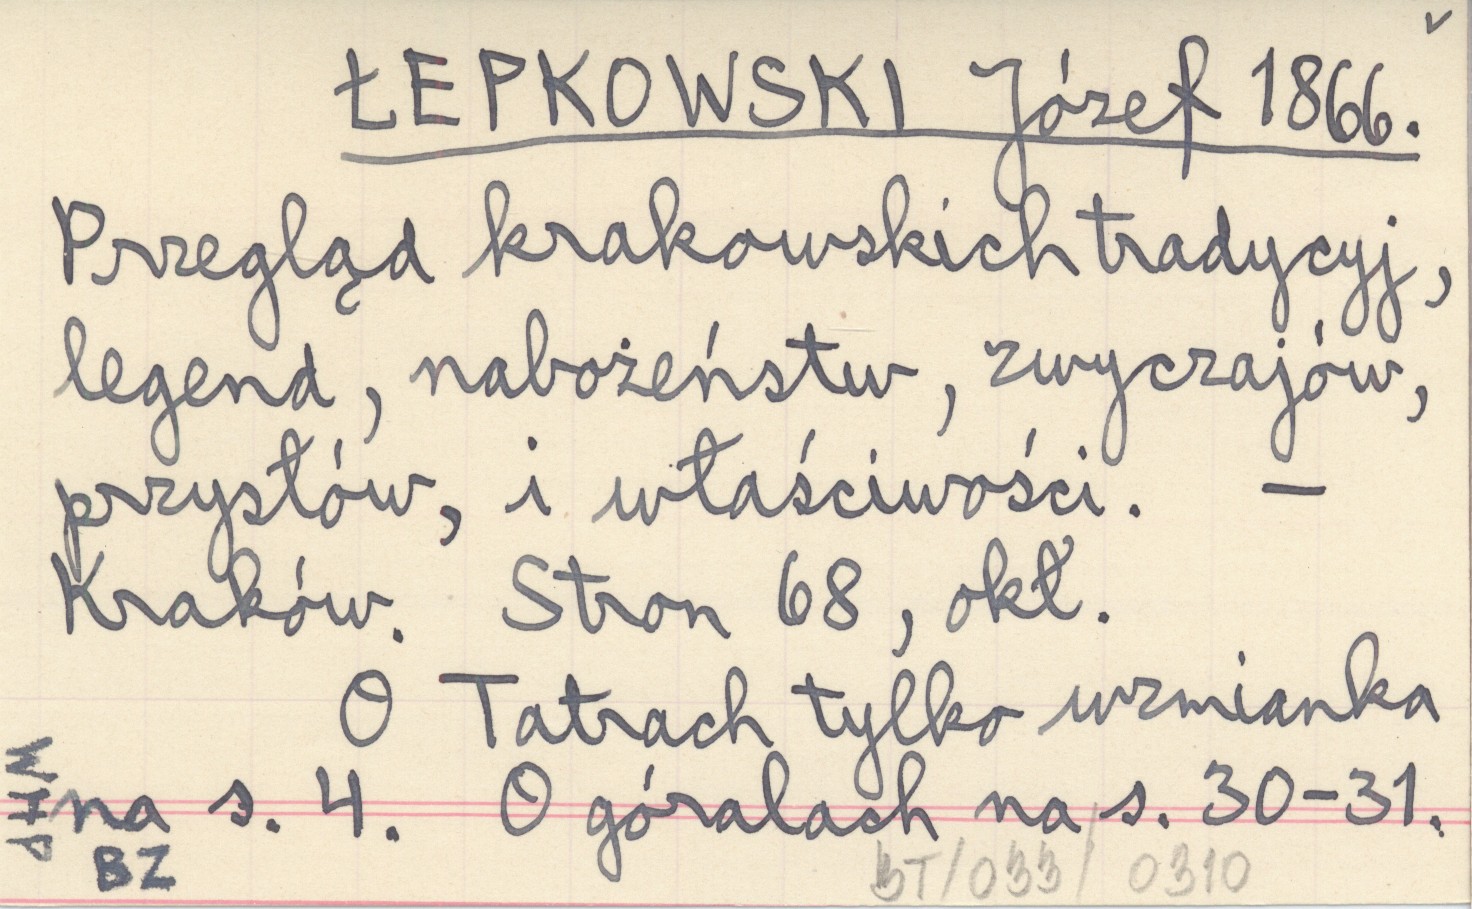 ✓
ŁEPKOWSKI Józef 1866.
Przegląd krakowskich tradycyj,
legend, nabożeństw, zwyczajów,
przysłów, i właściwości. –
Kraków. Stron 68, okł.
O Tatrach tylko wzmianka
na s. 4. O góralach na s. 30-31.
WHP
BZ
BT/033/0310